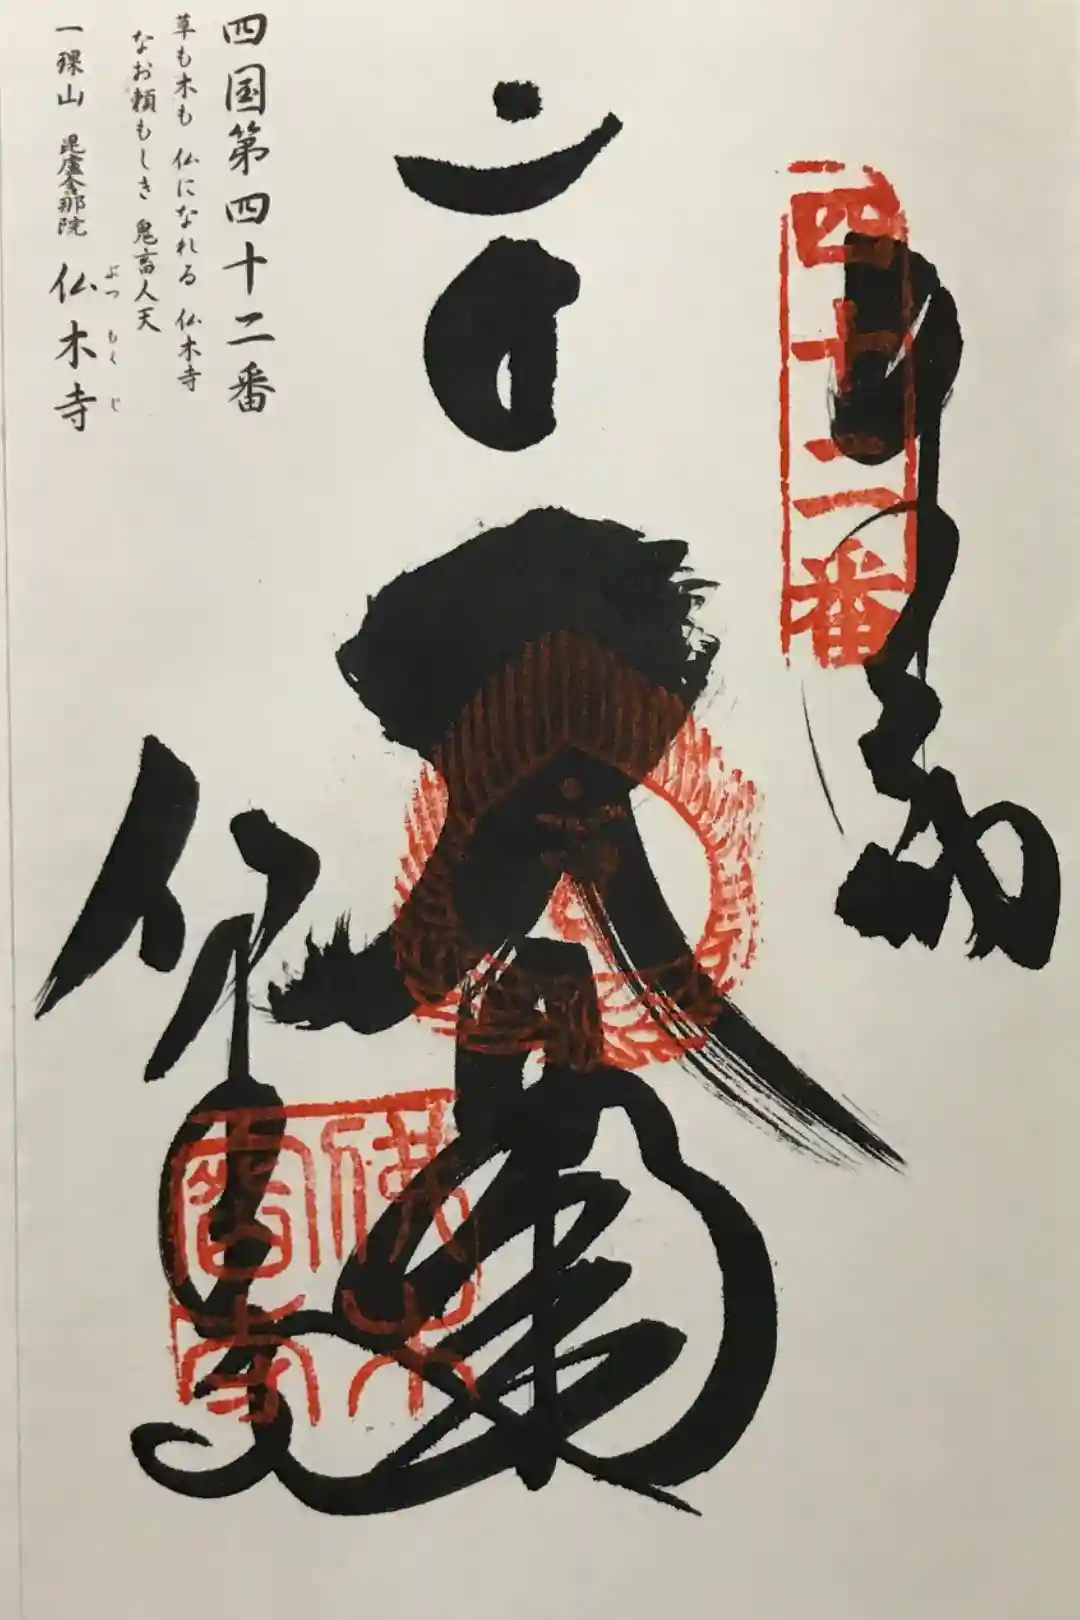 四国第四十二番
草も木も 仏になれる 仏木寺
なお頼もしき 鬼畜人天
一𤩍山 毘盧舎那院 仏木寺
ぶつもくじ
四十二番
奉納
仏木寺